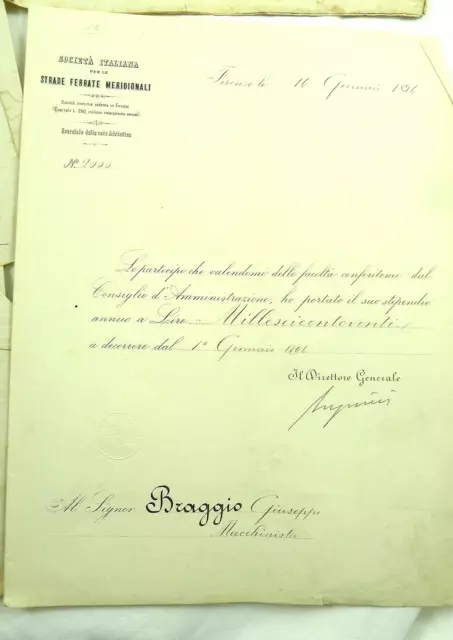 SOCIETÀ ITALIANA
PER LE
STRADE FERRATE MERIDIONALI
Società anonima sedente in Firenze
Capitale L. 260 milioni interamente versati
Esercizio della rete Adriatica
Nº 2000
Firenze li 16 Gennaio 1896
Le partecipo che valendomi delle facoltà conferitemi dal
Consiglio d'Amministrazione, ho portato il suo stipendio
annuo a Lire Milleseicentoventi
a decorrere dal 1º Gennaio 1896
Il Direttore Generale
Al Signor Braggio Giuseppe
Macchinista